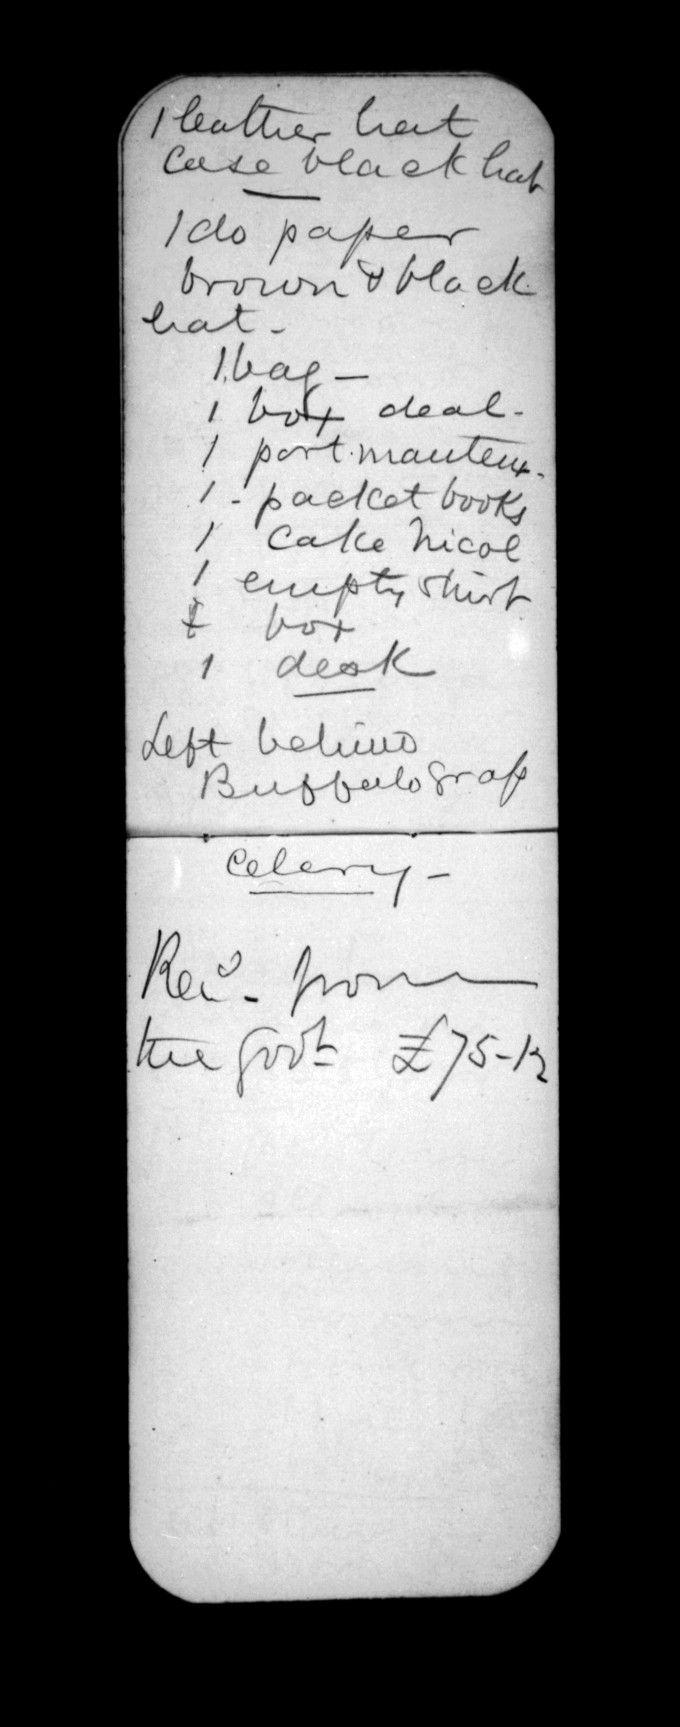 1 leather hat
case black hat
1 do paper
brown & black
hat -
1 bag -
1 box deal -
1 portmanteux -
1 - packet books
1 cake Nicol
1 empty shirt
box
1 desk
Left behind
Buffalo Grass
Celery -
Recd - from
the Govt £75-12